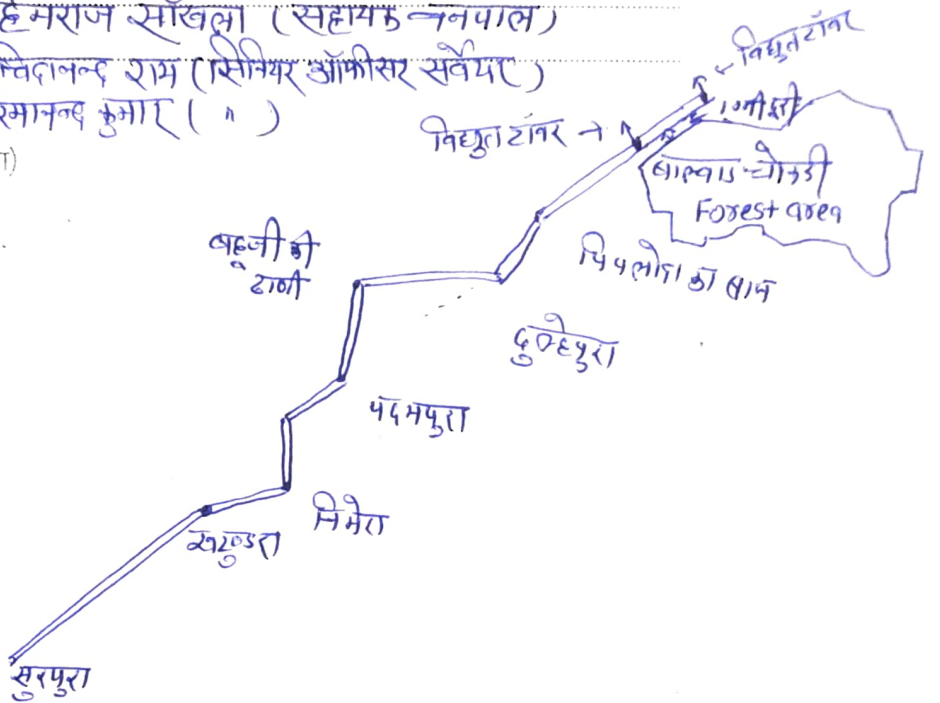 हेमराज साँखला (सहायक वनपाल)
च्चिदानन्द राम (सिनियर ऑफीसर सर्वेयर)
रमानन्द कुमार ( " )
← विद्युत टॉवर
विद्युत टॉवर →
बाल्वाड-चोकडी
Forest area
बहूजी की
ढाणी
पिपलोदा का बास
दुल्हेपुरा
पदमपुरा
निमेरा
खटुण्डरा
सुरपुरा